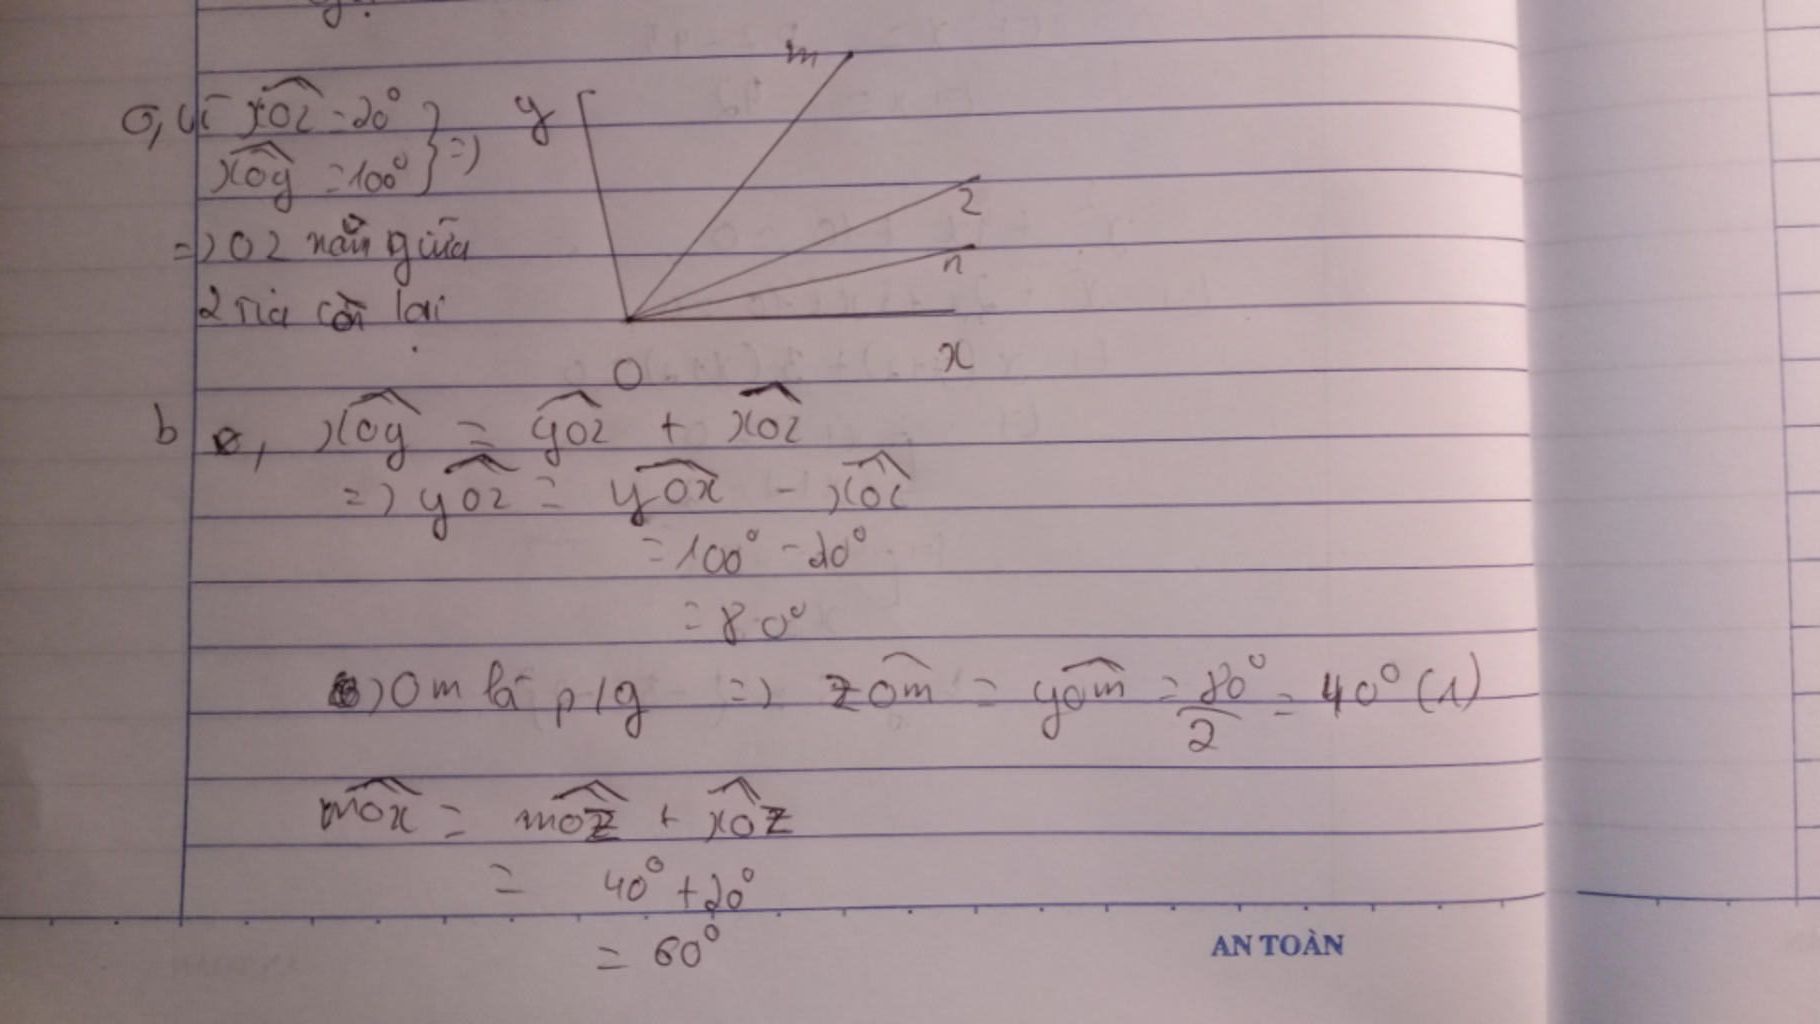 a, Vì xOz = 20°
xOy = 100° } =>
=> Oz nằm giữa
2 tia còn lại
y
m
z
n
O
x
b, xOy = yOz + xOz
=> yOz = yOx - xOz
= 100° - 20°
= 80°
) Om là p/g => zOm = yOm = 80°/2 = 40° (1)
mOx = mOz + xOz
= 40° + 20°
= 60°
AN TOÀN